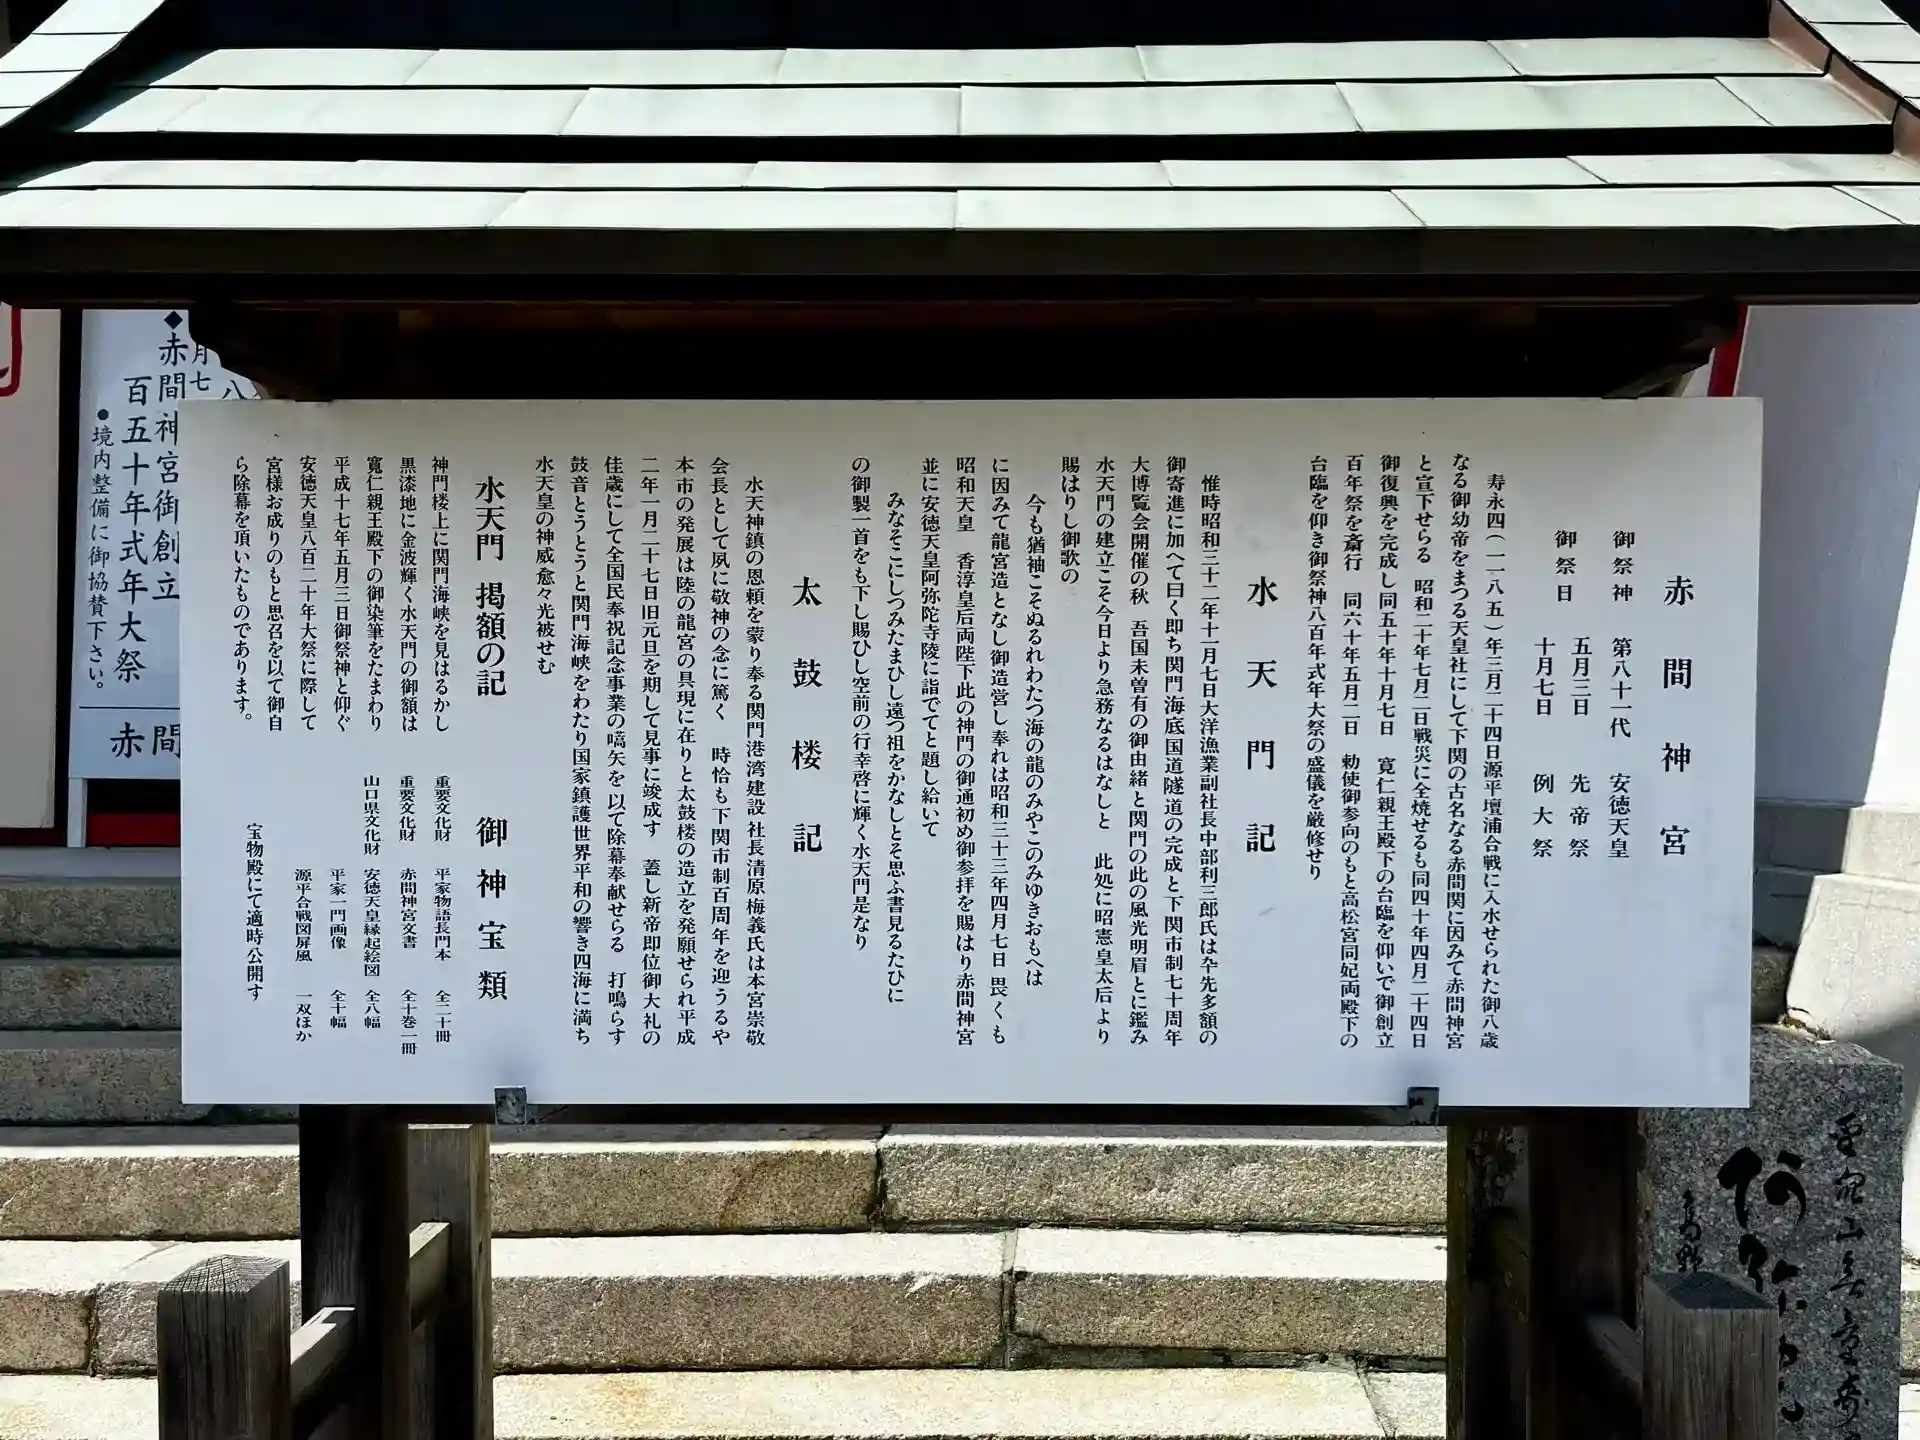 赤間神宮
御祭神　第八十一代　安徳天皇
御祭日　五月三日　先帝祭
十月七日　例大祭
寿永四(一一八五)年三月二十四日源平壇浦合戦に入水せられた御八歳
なる御幼帝をまつる天皇社にして下関の古名なる赤間関に因みて赤間神宮
と宣下せらる　昭和二十年七月二日戦災に全焼せるも同四十年四月二十四日
御復興を完成し同五十年十月七日　寛仁親王殿下の台臨を仰いで御創立
百年祭を斎行　同六十年五月二日　勅使御参向のもと高松宮同妃両殿下の
台臨を仰き御祭神八百年式年大祭の盛儀を厳修せり
水天門記
惟時昭和三十二年十一月七日大洋漁業副社長中部利三郎氏は夲先多額の
御寄進に加へて曰く即ち関門海底国道隧道の完成と下関市制七十周年
大博覧会開催の秋　吾国未曽有の御由緒と関門の此の風光明眉とに鑑み
水天門の建立こそ今日より急務なるはなしと　此処に昭憲皇太后より
賜はりし御歌の
今も猶袖こそぬるれわたつ海の龍のみやこのみゆきおもへは
に因みて龍宮造となし御造営し奉れは昭和三十三年四月七日　畏くも
昭和天皇　香淳皇后両陛下此の神門の御通初め御参拝を賜はり赤間神宮
並に安徳天皇阿弥陀寺陵に詣でてと題し給いて
みなそこにしつみたまひし遠つ祖をかなしとそ思ふ書見るたひに
の御製一首をも下し賜ひし空前の行幸啓に輝く水天門是なり
太鼓楼記
水天神鎮の恩頼を蒙り奉る関門港湾建設社長清原梅義氏は本宮崇敬
会長として夙に敬神の念に篤く　時恰も下関市制百周年を迎うるや
本市の発展は陸の龍宮の具現に在りと太鼓楼の造立を発願せられ平成
二年一月二十七日旧元旦を期して見事に竣成す　蓋し新帝即位御大礼の
佳歳にして全国民奉祝記念事業の嚆矢を以て除幕奉献せらる　打鳴らす
鼓音とうとうと関門海峡をわたり国家鎮護世界平和の響き四海に満ち
水天皇の神威愈々光被せむ
水天門 掲額の記
神門楼上に関門海峡を見はるかし
黒漆地に金波輝く水天門の御額は
寛仁親王殿下の御染筆をたまわり
平成十七年五月三日御祭神と仰ぐ
安徳天皇八百二十年大祭に際して
宮様お成りのもと思召を以て御自
ら除幕を頂いたものであります。
御神宝類
重要文化財　平家物語長門本　全二十冊
重要文化財　赤間神宮文書　全十巻一冊
山口県文化財　安徳天皇縁起絵図　全八幅
平家一門画像　全十幅
源平合戦図屏風　一双ほか
宝物殿にて適時公開す
八
月七
◆赤間神宮御創立
百五十年式年大祭
●境内整備に御協賛下さい。
赤間
高野